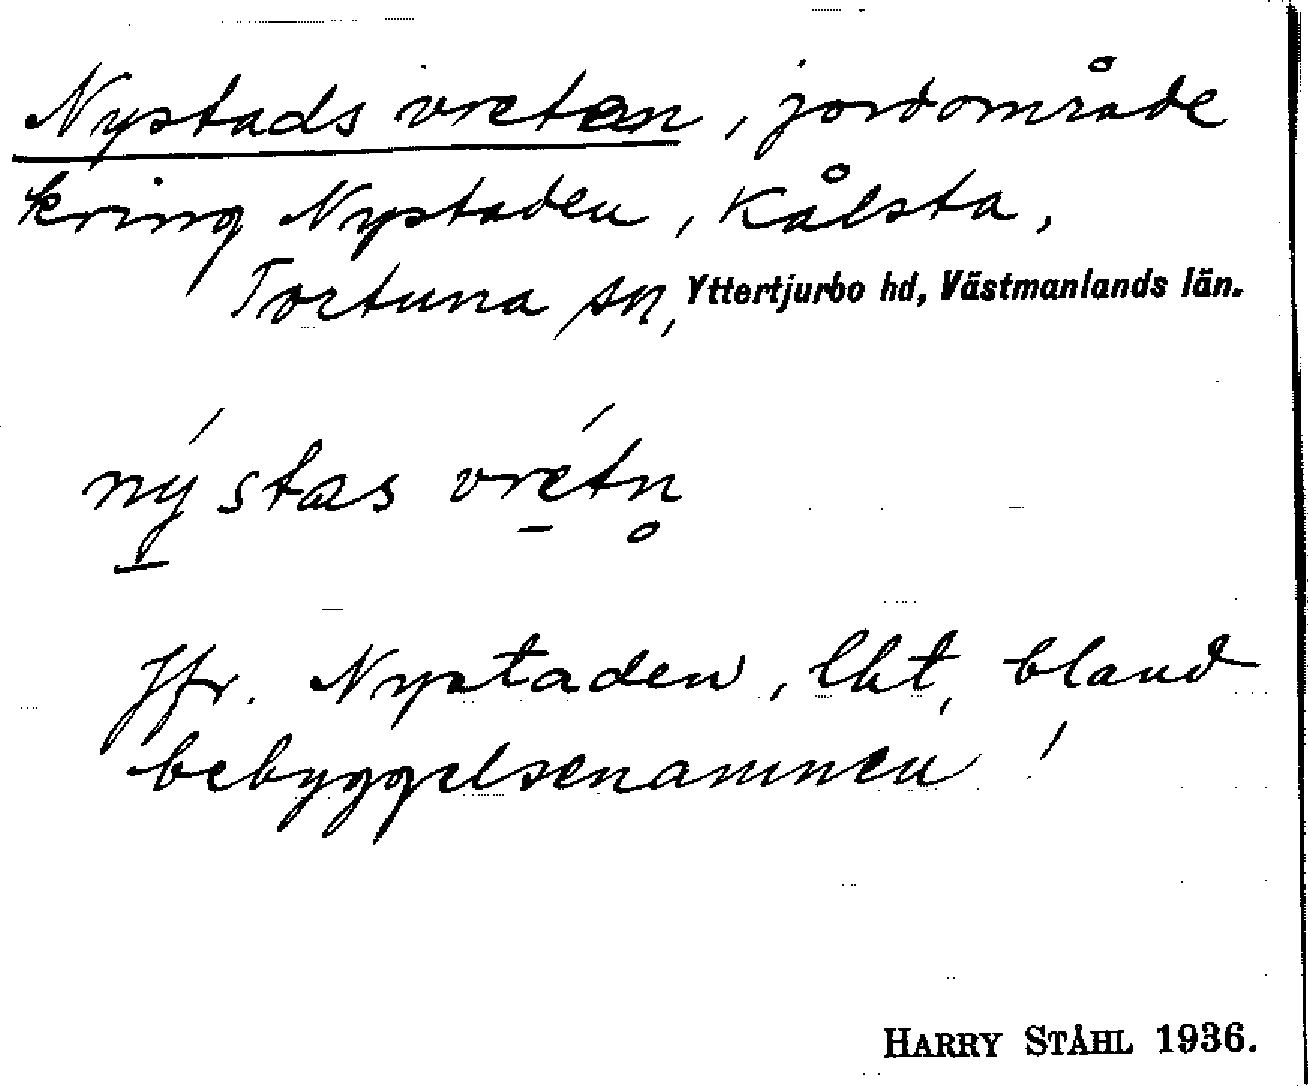 Nystads vreten, jordområde
kring Nystaden, Kålsta,
Tortuna sn, Yttertjurbo hd, Västmanlands län.
ný̱stas vré̱tn̥
Jfr. Nystaden, lht, bland
bebyggelsenamnen!
HARRY STÅHL 1936.